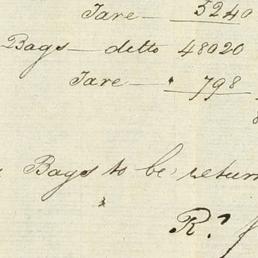 Tare — 5240
Bags — ditto 48020
Tare — 798
Bags to be return
R.